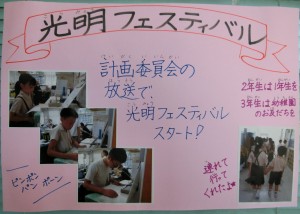 光明フェスティバル
計画委員会の
放送で、
光明フェスティバル
スタート!
2年生は1年生を
3年生は幼稚園
のお友だちを
連れて
行って
くれたよ♥
ピンポン
パン ポーン